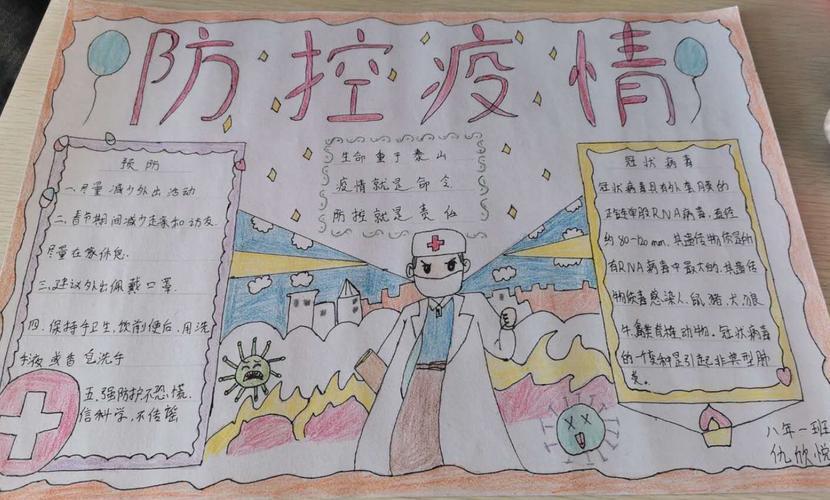 防控疫情
预防
一、尽量减少外出活动
二、春节期间减少走亲和访友
尽量在家休息.
三、建议外出佩戴口罩
四、保持手卫生,饮前便后,用洗
手液或香皂洗手
五、强防护不恐慌.
信科学,不传谣
生命重于泰山
疫情就是命令
防控就是责任
冠状病毒
冠状病毒具有外套膜的
正链单股RNA病毒,直径
约80-120mm,其遗传物质是所
有RNA病毒中最大的,其遗传
物质感染人、鼠、猪、犬、狼
牛、禽类脊椎动物。冠状病毒
的一个变种是引起非典型肺
炎。
八年一班
仇欣悦